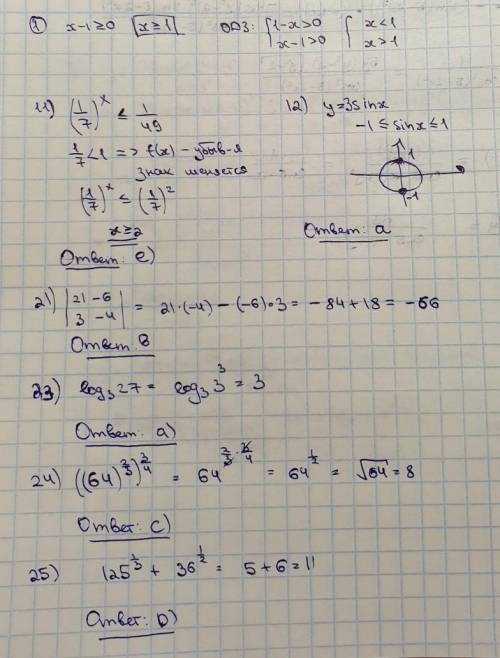 ① x-1≥0 x≥1 ОДЗ: {1-x>0 {x<1
x-1>0 x>1
11) (1/7)^x ≤ 1/49
1/7<1 => f(x) - убыв-я
знак меняется
(1/7)^x ≤ (1/7)^2
x≥2
Ответ: е)
12) y=3sinx
-1≤sinx≤1
1
-1
Ответ: а
21) |21 -6| = 21·(-4) - (-6)·3 = -84+18 = -66
|3 -4|
Ответ: в
23) log₃27 = log₃3³ = 3
Ответ: а)
24) ((64)^(2/3))^(3/4) = 64^(2/3·3/4) = 64^(1/2) = √64 = 8
Ответ: с)
25) 125^(1/3) + 36^(1/2) = 5+6=11
Ответ: D)